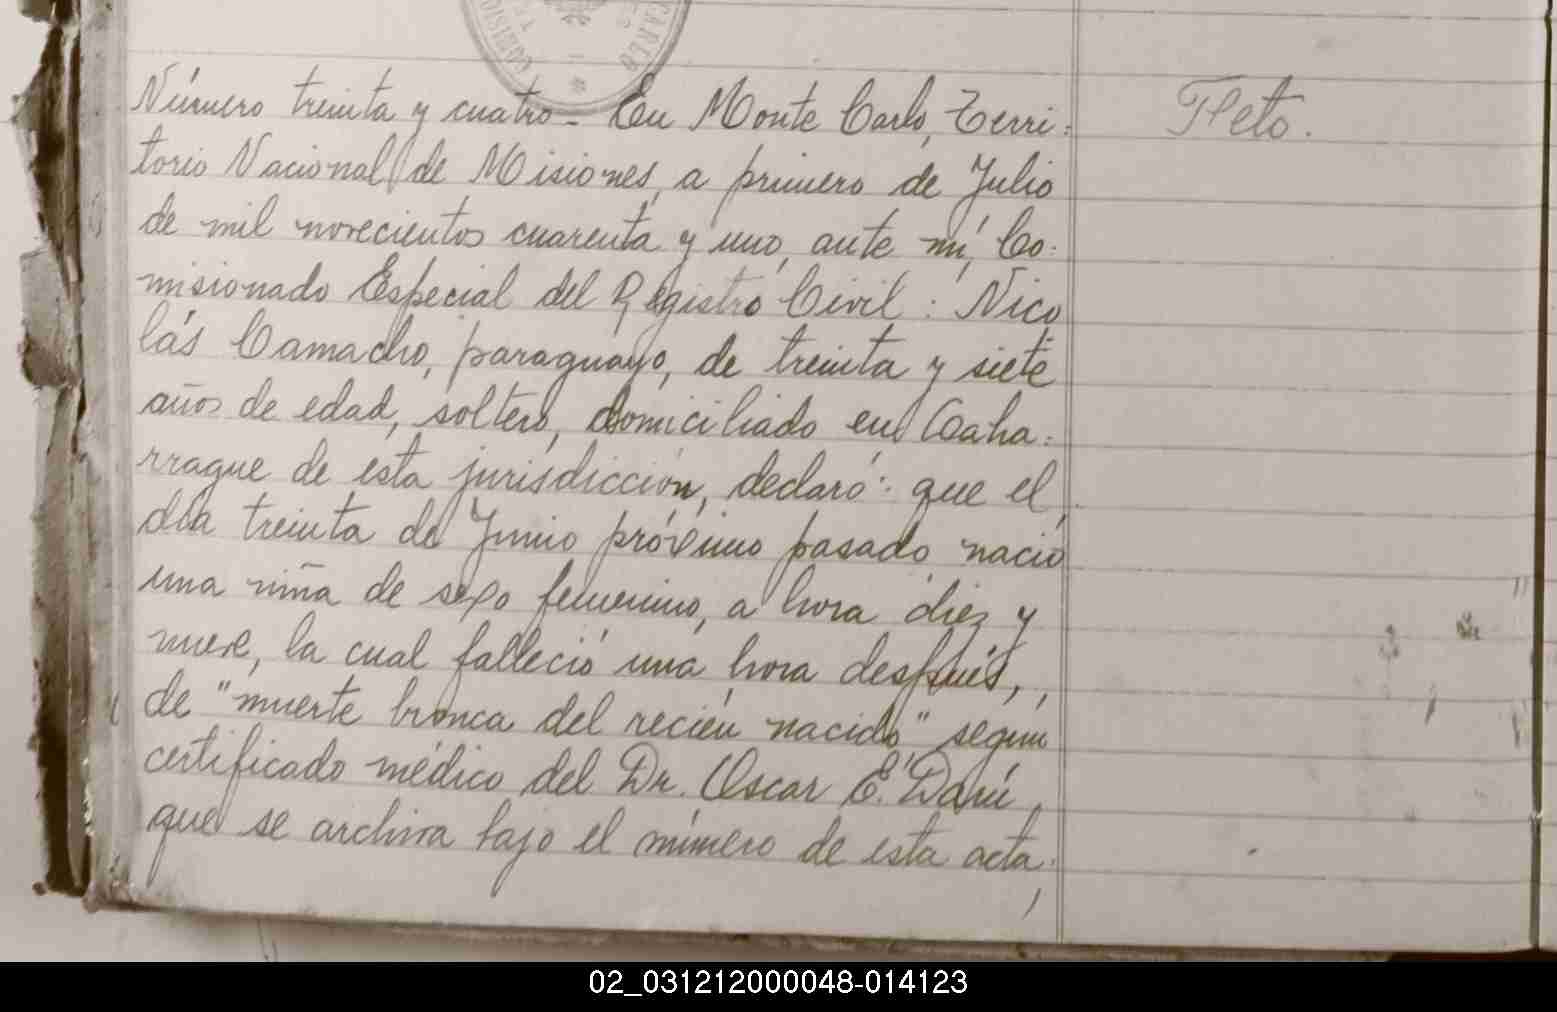 Número treinta y cuatro - En Monte Carlo, Terri-
torio Nacional de Misiones, a primero de Julio
de mil novecientos cuarenta y uno, ante mí, Co-
misionado Especial del Registro Civil: Nico
lás Camacho, paraguayo, de treinta y siete
años de edad, soltero, domiciliado en Caha-
rrague de esta jurisdicción, declaró: que el
día treinta de Junio próximo pasado nació
una niña de sexo femenino, a hora diez y
nueve, la cual falleció una hora después,
de "muerte bronca del recién nacido" según
certificado médico del Dr. Oscar E. Darú,
que se archiva bajo el número de esta acta,
Feto.
02_031212000048-014123